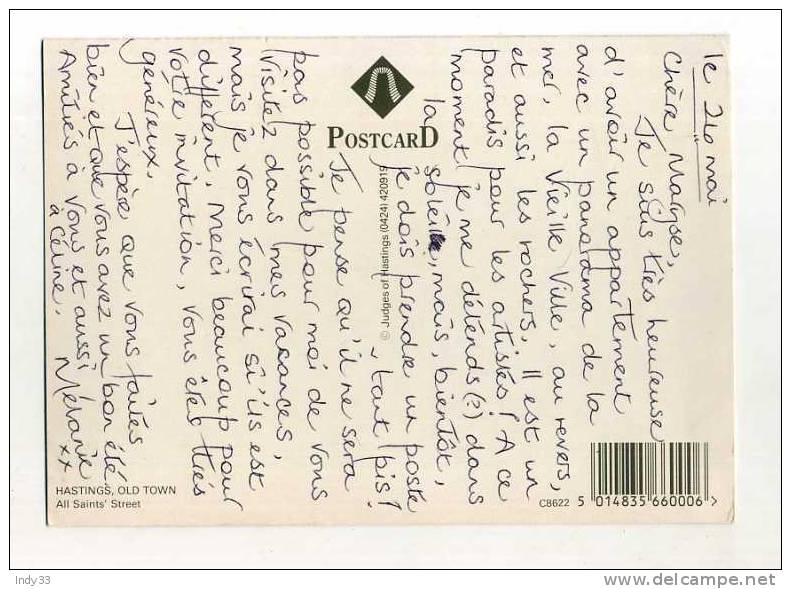 le 24 mai
Chère Maryse,
Je suis très heureuse
d'avoir un appartement
avec un panorama de la
mer, la Vieille Ville, au revers,
et aussi les rochers. Il est un
paradis pour les artistes! A ce
moment je me détends(?) dans
la soleil, mais, bientôt,
je dois prendre un poste
, tant pis!
Je pense qu'il ne sera
pas possible pour moi de vous
visitez dans mes vacances,
mais je vous écrirai si'ils est
different. Merci beaucoup pour
votre invitation, vous êtes très
généreux.
J'espère que vous faites
bien et que vous avez un bon été
Amitiés à vous et aussi
à Céline. Mélanie
xx
POSTCARD
© Judges of Hastings (0424) 420919
HASTINGS, OLD TOWN
All Saints' Street
C8622
5 014835 660006 >
Indy33
delcampe.net